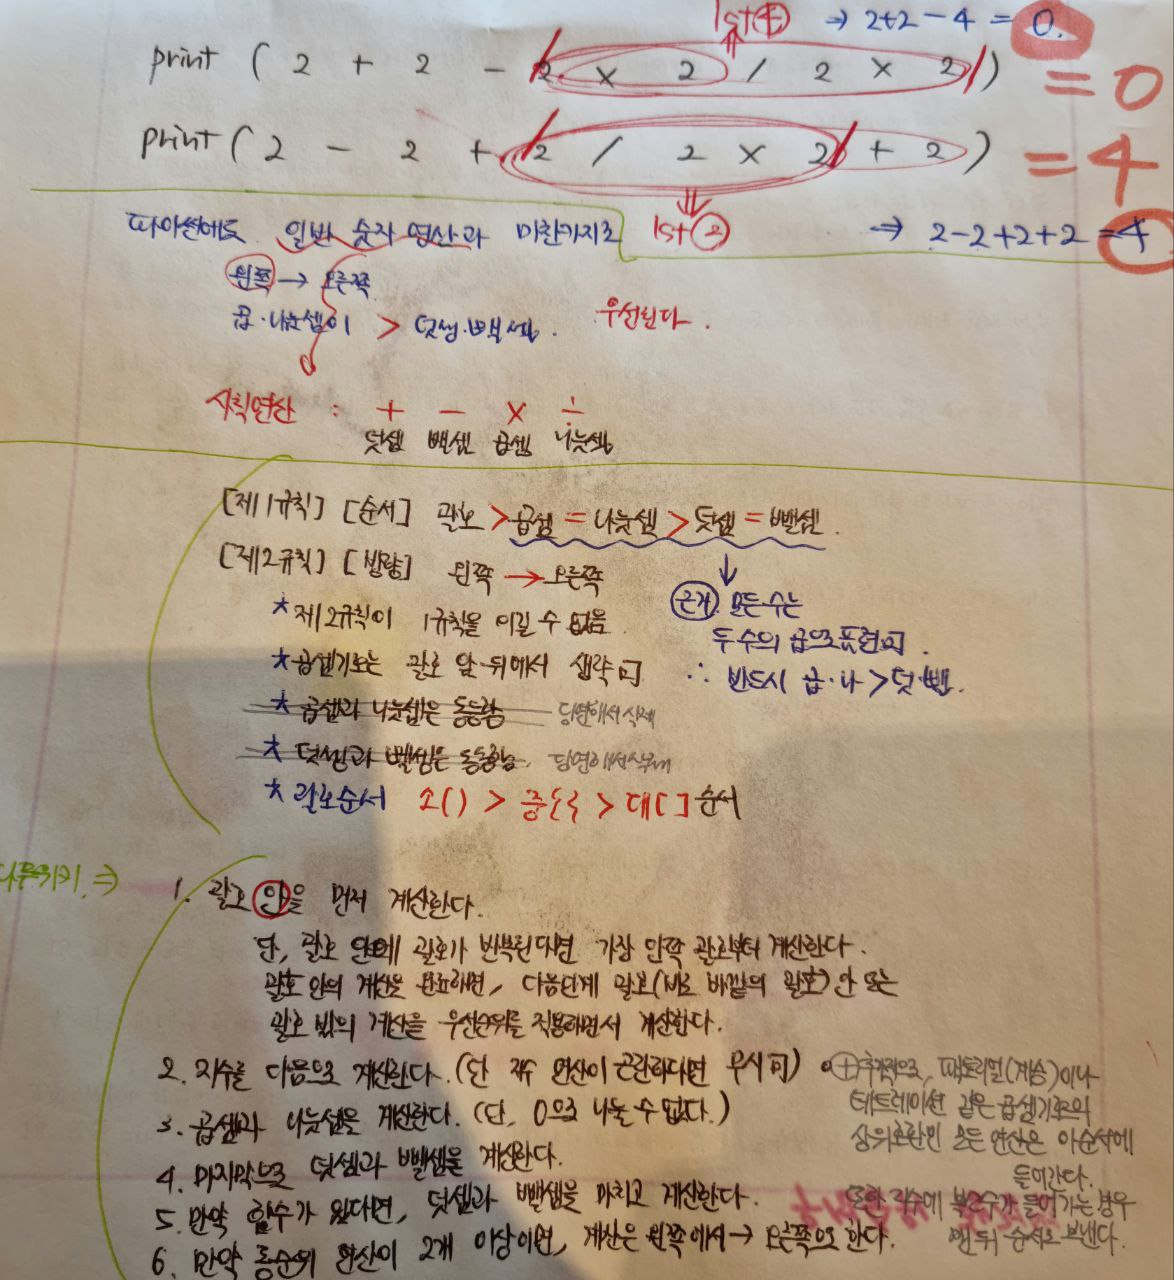 1st ④ ⇒ 2+2-4 = 0.
print ( 2 + 2 - 2 × 2 / 2 × 2 ) = 0
print ( 2 - 2 + 2 / 2 × 2 + 2 ) = 4
파이썬에도 일반 숫자 연산과 마찬가지로 1st ② ⇒ 2-2+2+2 = 4
왼쪽 → 오른쪽
곱·나눗셈이 > 덧셈·뺄셈. 우선된다.
사칙연산 : + - × ÷
덧셈 뺄셈 곱셈 나눗셈
[제1규칙] [순서] 괄호 > 곱셈 = 나눗셈 > 덧셈 = 뺄셈.
[제2규칙] [방향] 왼쪽 → 오른쪽
근거. 모든 수는
* 제2규칙이 1규칙을 이길 수 없음
두 수의 곱으로 표현可.
* 곱셈기호는 괄호 앞·뒤에서 생략可.
∴ 반드시 곱·나 > 덧·뺄.
* 곱셈과 나눗셈은 동등함 당연해서 삭제
* 덧셈과 뺄셈은 동등함. 당연해서 삭제
* 괄호순서 소( ) > 중{ } > 대[ ] 순서
⇒
1. 괄호 안을 먼저 계산한다.
단, 괄호 안에 괄호가 반복된다면 가장 안쪽 괄호부터 계산한다.
괄호 안의 계산을 완료하면, 다음단계 괄호(바로 바깥의 괄호) 안 또는
괄호 밖의 계산을 우선순위를 적용하면서 계산한다.
2. 지수를 다음으로 계산한다. (단 지수 연산이 곤란하다면 무시可)
3. 곱셈과 나눗셈을 계산한다. (단, 0으로 나눌 수 없다.)
4. 마지막으로 덧셈과 뺄셈을 계산한다.
5. 만약 함수가 있다면, 덧셈과 뺄셈을 마치고 계산한다.
6. 만약 동순위 연산이 2개 이상이면, 계산은 왼쪽에서 → 오른쪽으로 한다.
⊕ 추가적으로, 팩토리얼(계승)이나
테트레이션 같은 곱셈기호의
상위호환인 모든 연산은 이 순서에
들어간다.
또한 지수에 복소수가 들어가는 경우
맨 뒤 순서로 보낸다.